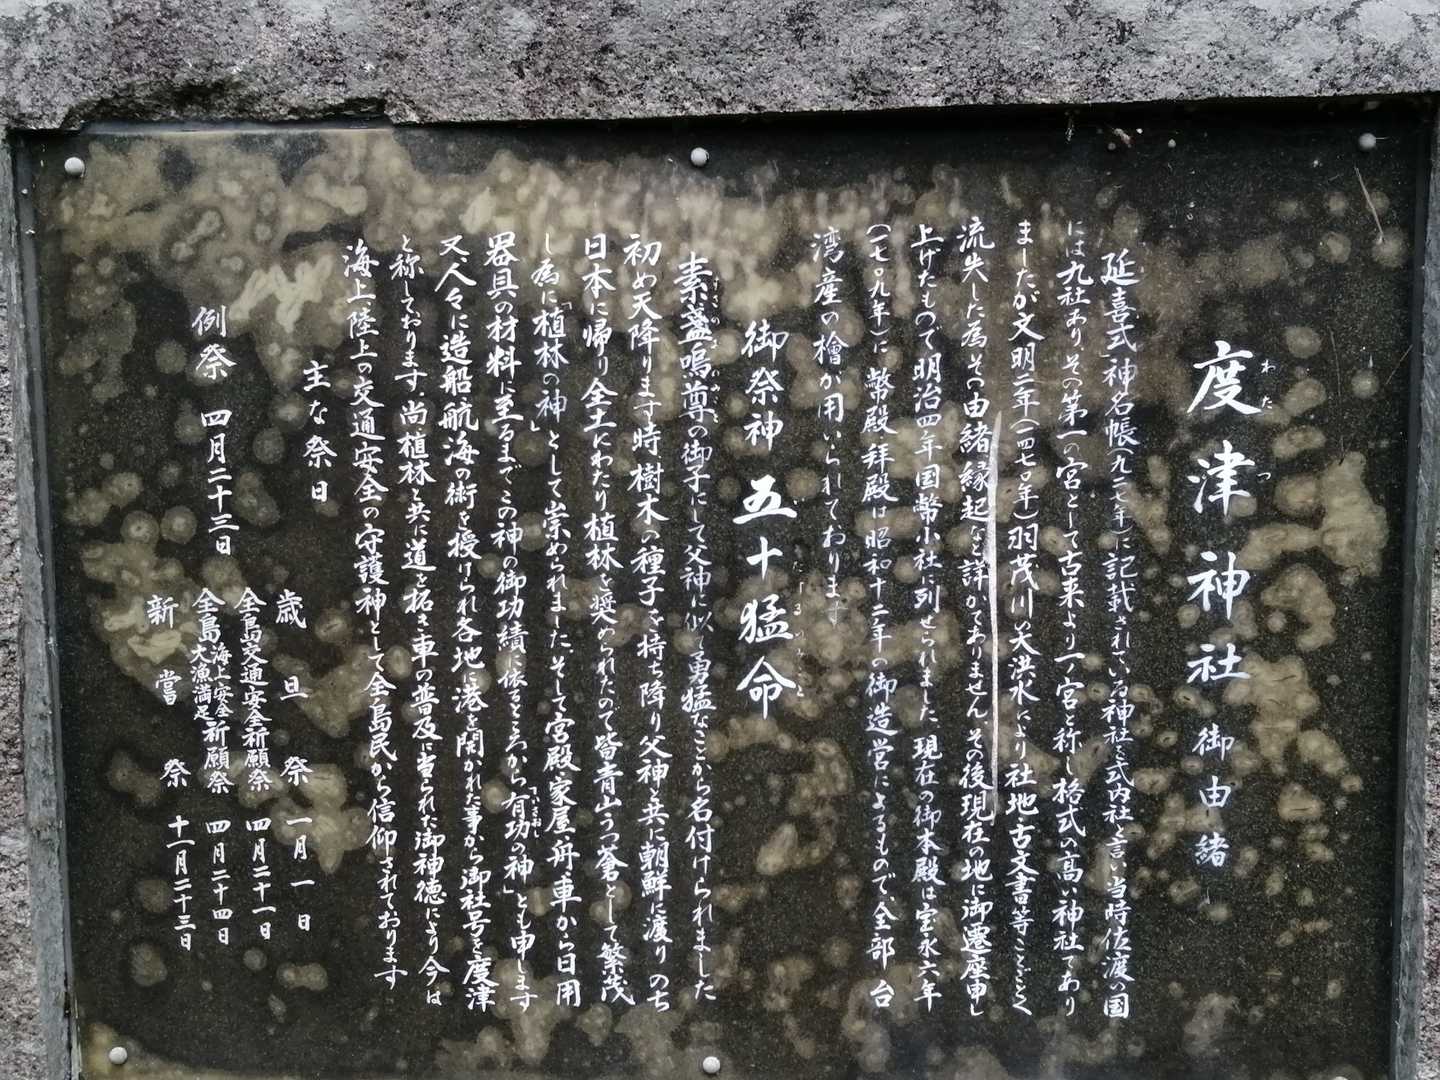 度津神社 御由緒
わたつ
延喜式神名帳(九二七年)に記載されている神社を式内社と言い、当時佐渡の国
には九社あり、その第一の宮として古来より一ノ宮と称し格式の高い神社であり
ましたが文明二年(一四七〇年)羽茂川の大洪水により社地古文書等ことごとく
流失した為その由緒縁起など詳かでありません。その後現在の地に御遷座申し
上げたもので明治四年国幣小社に列せられました。現在の御本殿は宝永六年
(一七〇九年)に幣殿拝殿は昭和十二年の御造営によるもので、全部台
湾産の檜が用いられております
御祭神 五十猛命
いたけるのみこと
素盞嗚尊の御子にして父神に似て勇猛なことから名付けられました
すさのおのみこと
初め天降ります時樹木の種子を持ち降り父神と共に朝鮮に渡りのち
日本に帰り全土にわたり植林を奨められたので皆青山うつ蒼として繁茂
し為に「植林の神」として崇められました。そして宮殿家屋、舟、車から日用
器具の材料に至るまでこの神の御功績に依るところから「有功の神」とも申します
いさおし
又、人々に造船航海の術を授けられ各地に港を開かれた事から御社号を度津
と称しております。尚植林と共に道を拓き車の普及に当られた御神徳により今は
海上陸上の交通安全の守護神として全島民から信仰されております
主な祭日
歳旦祭 一月一日
例祭 四月二十三日
全島交通安全祈願祭 四月二十一日
全島海上安全大漁満足祈願祭 四月二十四日
新嘗祭 十一月二十三日